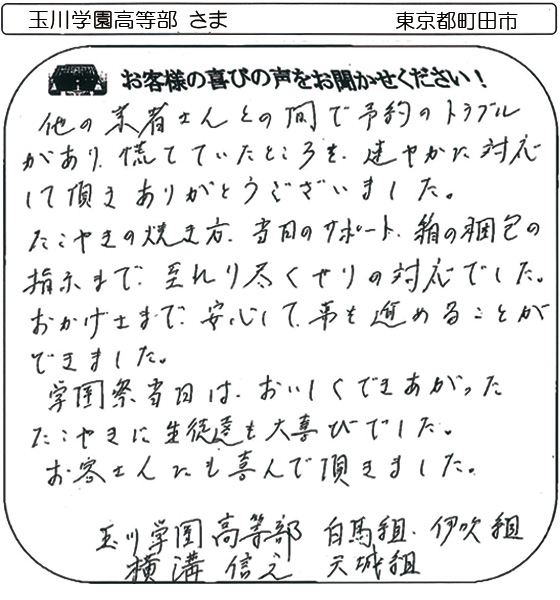 玉川学園高等部 さま 東京都町田市
お客様の喜びの声をお聞かせください！
他の業者さんとの間で予約のトラブル
があり、慌てていたところを、速やかに対応
して頂きありがとうございました。
たこやきの焼き方、当日のサポート、箱の梱包の
指示まで、至れり尽くせりの対応でした。
おかげさまで、安心して、事を進めることが
できました。
学園祭当日は、おいしくできあがった
たこやきに生徒達も大喜びでした。
お客さんにも喜んで頂きました。
玉川学園高等部 白馬組、伊吹組
横溝信之 天城組